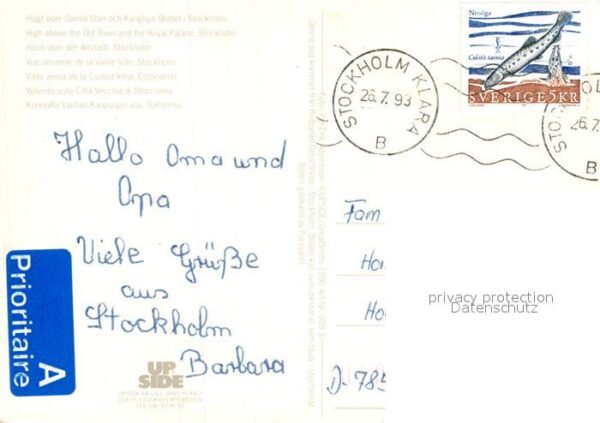 Högt över Gamla Stan och Kungliga Slottet i Stockholm.
High above the Old Town and the Royal Palace, Stockholm
Hoch über der Altstadt, Stockholm
Vue aérienne de la Vieille Ville, Stockholm.
Vista aérea de la Ciudad Vieja, Estocolmo.
Volando sulla Città Vecchia di Stoccolma
Korkealla Vanhan Kaupungin yllä, Tukholma
Hallo Oma und
Opa
Viele Grüße
aus
Stockholm
Barbara
Prioritaire
A
UP
SIDE
STOCKHOLM KLARA
26.7.93
B
Nissöga
Cobitis taenia
SVERIGE 5KR
26.7.
B
Fam
Ha
Ho
D-785
privacy protection
Datenschutz